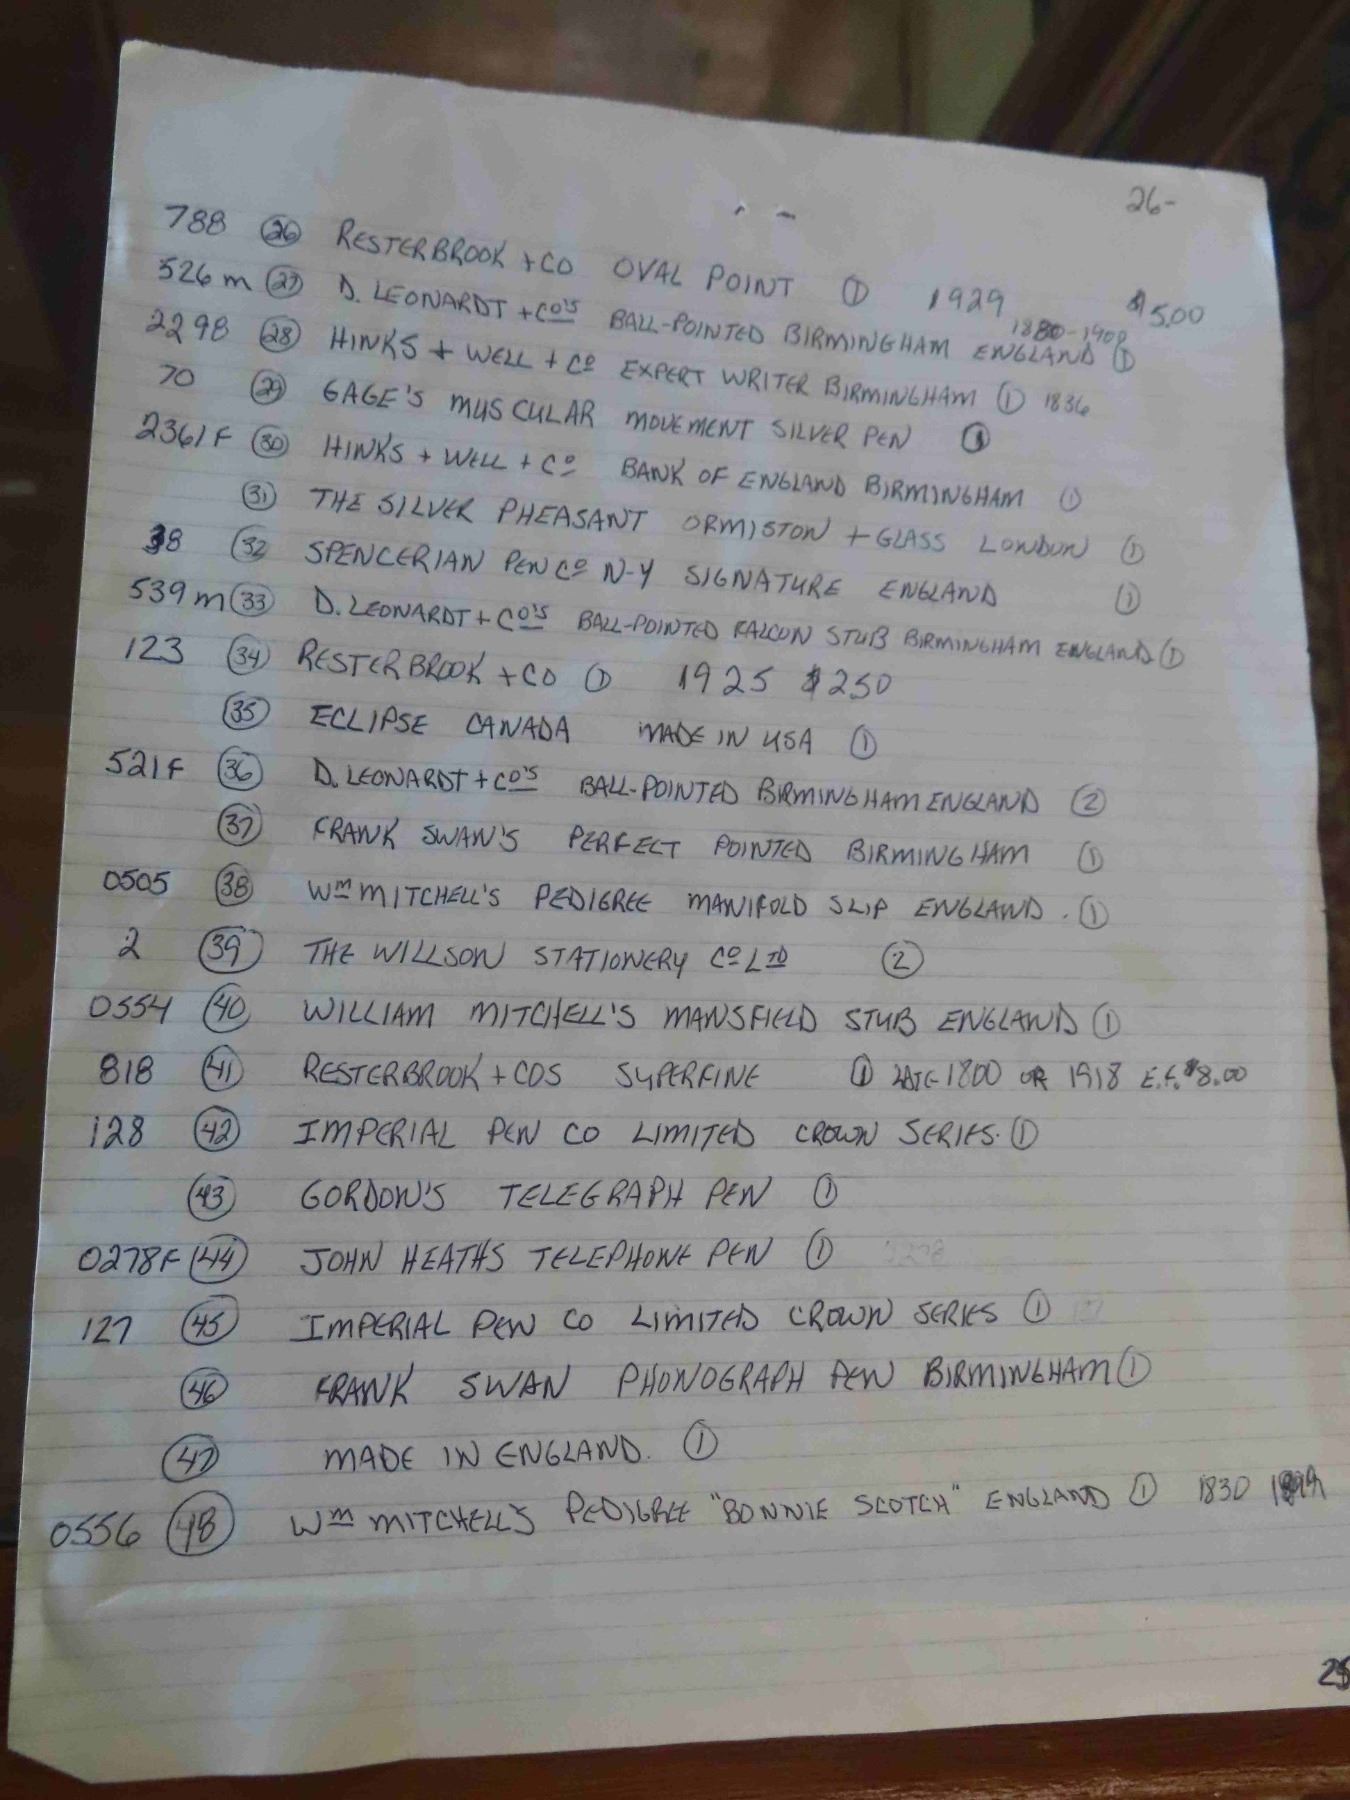 26-
788 (26) RESTERBROOK + CO OVAL POINT (1) 1929 $5.00
526 M (27) D. LEONARDT + CO'S BALL-POINTED BIRMINGHAM ENGLAND (1) 1880-1908
2298 (28) HINKS + WELL + CO EXPERT WRITER BIRMINGHAM (1) 1836
70 (29) GAGE'S MUSCULAR MOVEMENT SILVER PEN (1)
2361 F (30) HINKS + WELL + CO BANK OF ENGLAND BIRMINGHAM (1)
(31) THE SILVER PHEASANT ORMISTON + GLASS LONDON (1)
38 (32) SPENCERIAN PEN CO N-Y SIGNATURE ENGLAND (1)
539 M (33) D. LEONARDT + CO'S BALL-POINTED FALCON STUB BIRMINGHAM ENGLAND (1)
123 (34) RESTERBROOK + CO (1) 1925 $250
(35) ECLIPSE CANADA MADE IN USA (1)
521F (36) D. LEONARDT + CO'S BALL-POINTED BIRMINGHAM ENGLAND (2)
(37) FRANK SWAN'S PERFECT POINTED BIRMINGHAM (1)
0505 (38) WM MITCHELL'S PEDIGREE MANIFOLD SLIP ENGLAND. (1)
2 (39) THE WILLSON STATIONERY CO LTD (2)
0554 (40) WILLIAM MITCHELL'S MANSFIELD STUB ENGLAND (1)
818 (41) RESTERBROOK + COS SUPERFINE (1) LATE 1800 OR 1918 E.F. $8.00
128 (42) IMPERIAL PEN CO LIMITED CROWN SERIES. (1)
(43) GORDON'S TELEGRAPH PEN (1)
0278F (44) JOHN HEATHS TELEPHONE PEN (1)
127 (45) IMPERIAL PEN CO LIMITED CROWN SERIES (1)
(46) FRANK SWAN PHONOGRAPH PEN BIRMINGHAM (1)
(47) MADE IN ENGLAND. (1)
0556 (48) WM MITCHELL'S PEDIGREE "BONNIE SCOTCH" ENGLAND (1) 1830